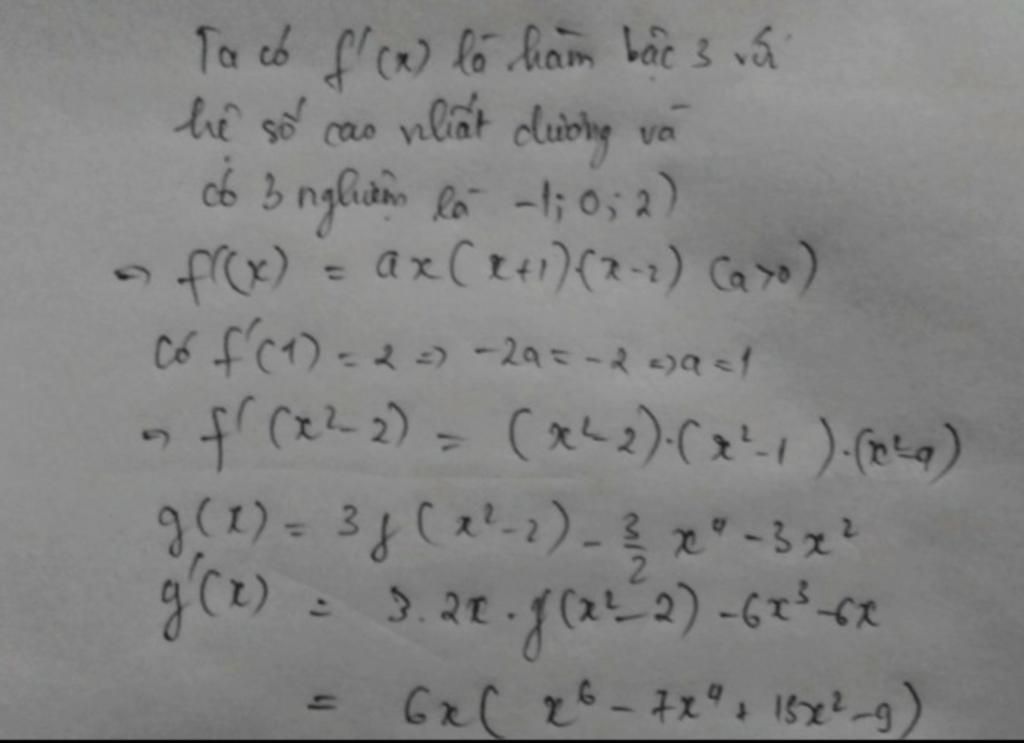 Ta có f'(x) là hàm bậc 3 với
hệ số cao nhất dương và
có 3 nghiệm là -1; 0; 2)
⇒ f'(x) = ax(x+1).(x-2) (a>0)
Có f'(1) = 2 => -2a = -2 => a = 1
⇒ f'(x²-2) = (x²-2).(x²-1).(x²-4)
g(x) = 3f(x²-2) - 3/2 x⁴ - 3x²
g'(x) = 3.2x.f(x²-2) - 6x³ - 6x
= 6x(x⁶ - 7x⁴ + 13x² - 9)